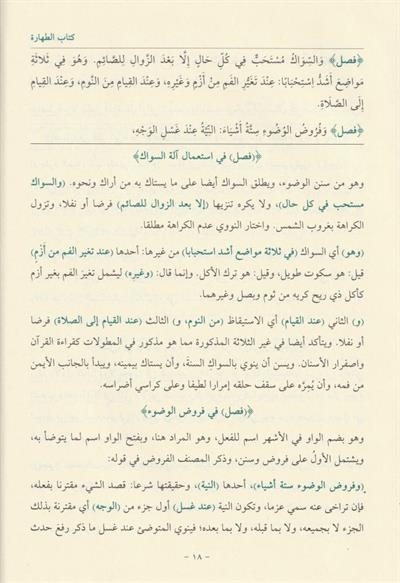 كتاب الطهارة
﴿فصل﴾ وَالسِّوَاكُ مُسْتَحَبٌّ فِي كُلِّ حَالٍ إِلَّا بَعْدَ الزَّوَالِ لِلصَّائِمِ. وَهُوَ فِي ثَلَاثَةِ
مَوَاضِعَ أَشَدُّ اِسْتِحْبَابًا: عِنْدَ تَغَيُّرِ الفَمِ مِنْ أَزْمٍ وَغَيْرِهِ، وَعِنْدَ القِيَامِ مِنَ النَّوْمِ، وَعِنْدَ القِيَامِ
إِلَى الصَّلَاةِ.
﴿فصل﴾ وَفُرُوضُ الْوُضُوءِ سِتَّةُ أَشْيَاءَ: النِّيَّةُ عِنْدَ غَسْلِ الوَجْهِ،
﴿(فصل) في استعمال آلة السواك﴾
وهو من سنن الوضوء، ويطلق السواك أيضا على ما يستاك به من أراك ونحوه. (والسواك
مستحب في كل حال)، ولا يكره تنزيها (إلا بعد الزوال للصائم) فرضا أو نفلا، وتزول
الكراهة بغروب الشمس. واختار النووي عدم الكراهة مطلقا.
(وهو) أي السواك (في ثلاثة مواضع أشد استحبابا) من غيرها: أحدها (عند تغير الفم من أَزْمٍ)
قيل: هو سكوت طويل، وقيل: هو ترك الأكل. وإنما قال: (وغيرِه) ليشمل تغيرَ الفم بغير أزم
كأكل ذي ريح كريه من ثوم وبصل وغيرهما.
(و) الثاني (عند القيام) أي الاستيقاظ (من النوم، و) الثالث (عند القيام إلى الصلاة) فرضا
أو نفلا. ويتأكد أيضا في غير الثلاثة المذكورة مما هو مذكور في المطولات كقراءة القرآن
واصفرار الأسنان. ويسن أن ينوي بالسواك السنةَ، وأن يستاك بيمينه، ويبدأ بالجانب الأيمن
من فمه، وأن يُمِرَّه على سقف حلقه إمرارا لطيفا وعلى كراسي أضراسه.
﴿(فصل) في فروض الوضوء﴾
وهو بضم الواو في الأشهر اسم للفعل، وهو المراد هنا، وبفتح الواو اسم لما يتوضأ به،
ويشتمل الأولُ على فروض وسنن، وذكر المصنف الفروض في قوله:
(وفروض الوضوء ستة أشياء)، أحدها (النية)، وحقيقتها شرعا: قصد الشيء مقترنا بفعله،
فإن تراخى عنه سمي عزما، وتكون النية (عند غسل) أول جزء من (الوجه) أي مقترنة بذلك
الجزء لا بجميعه، ولا بما قبله، ولا بما بعده؛ فينوي المتوضئ عند غسل ما ذكر رفعَ حدث
- ١٨ -